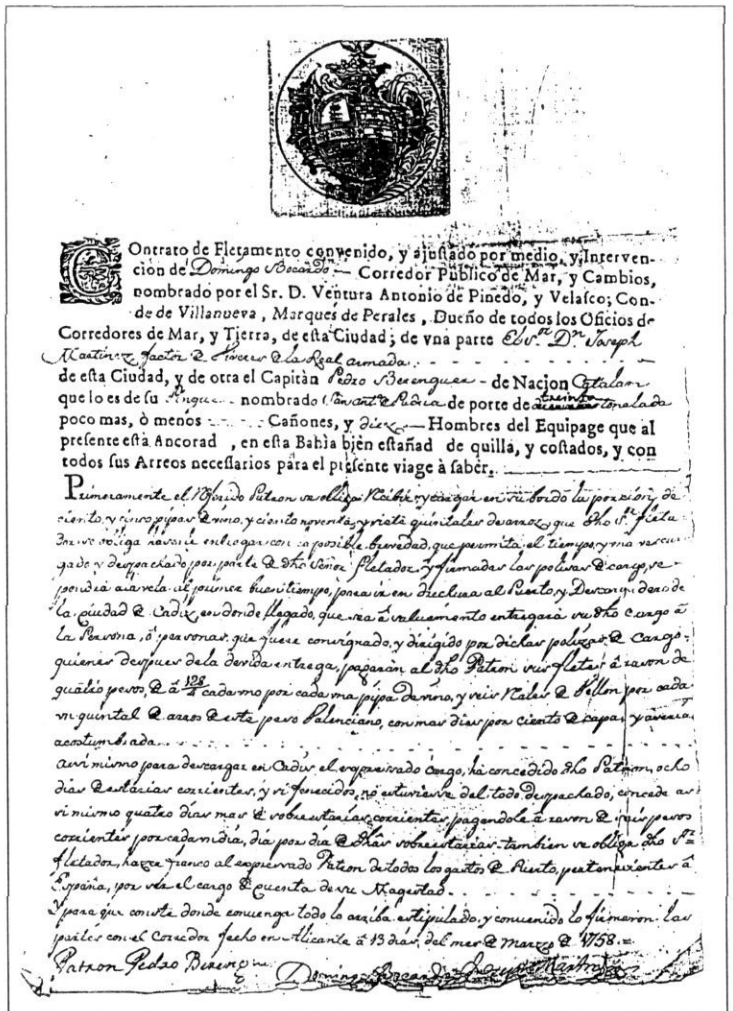 COntrato de Fletamento convenido, y ajustado por medio, y Interven-
cion de Domingo Bocardo — Corredor Publico de Mar, y Cambios,
nombrado por el Sr. D. Ventura Antonio de Pinedo, y Velasco; Con-
de de Villanueva, Marquès de Perales, Dueño de todos los Oficios de
Corredores de Mar, y Tierra, de esta Ciudad; de vna parte El Sr. Dn. Joseph
Martinez factor de Viveres de la Real armada
de esta Ciudad, y de otra el Capitàn Pedro Berenguer - de Nacion Catalan
que lo es de su Pingue nombrado de porte de treinta toneladas
poco mas, ò menos Cañones, y diez — Hombres del Equipage que al
presente està Ancorad , en esta Bahìa bien estañad de quilla, y costados, y con
todos sus Arreos necessarios para el presente viage à saber,
Primeramente el Referido Patron se obliga Recibir, y cargar en su bordo la porcion de
ciento, y cinco pipas de vino, y ciento noventa, y siete quintales de arroz, que dho Sr. fleta-
dor se obliga hacerle entregar con la posible brevedad, que permita el tiempo, y una vez car-
gado y despachado por parte de dho Señor fletador, y firmadas las polizas de cargo, se
pondrà a la vela al primer buen tiempo, para ir en derechura al Puerto, y Descargadero de
la ciudad de Cadiz, en donde llegado, que sea à salvamento entregarà su dho cargo à
la Persona, ò personas, que fuere consignado, y dirigido por dichas polizas de cargo;
quienes despues de la devida entrega, pagaràn al dho Patron sus fletes à razon de
quatro pesos, de à 128/4 cada uno por cada una pipa de vino, y seis Reales de Vellon por cada
un quintal de arros de este peso Valenciano, con mas dies por ciento de capa, y averia
acostumbrada
assi mismo para descargar en Cadis el expressado cargo, ha concedido dho Patron, ocho
dias de estarias corrientes, y si fenecidos, no estuviesse del todo despachado, concede as-
si mismo quatro dias mas de sobreestarias corrientes, pagandole à razon de seis pesos
corrientes por cada un dia, dia por dia de dhas sobreestarias. tambien se obliga dho Sr.
fletador, hazer franco al expressado Patron de todos los gastos de Puerto, pertenecientes à
España, por ser el cargo de quenta de su Magestad
Y para que conste donde convenga todo lo arriba estipulado, y convenido lo firmaron las
partes con el Corredor fecho en Alicante à 13 dias, del mes de Marzo de 1758.=
Patron Pedro Bereng